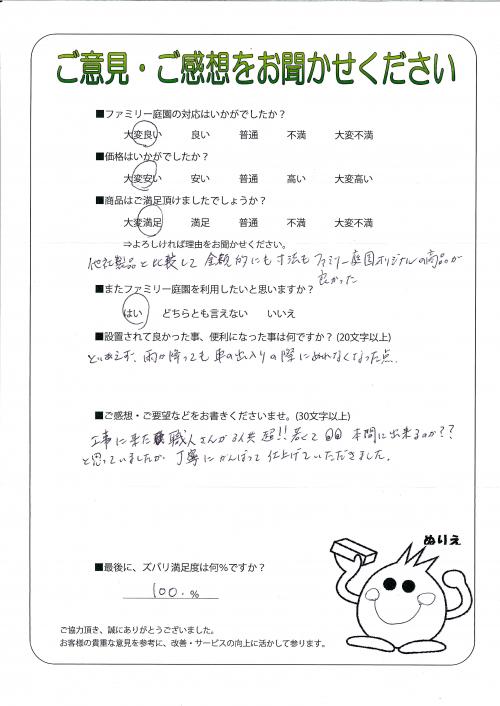 ご意見・ご感想をお聞かせください
■ファミリー庭園の対応はいかがでしたか？
大変良い 良い 普通 不満 大変不満
■価格はいかがでしたか？
大変安い 安い 普通 高い 大変高い
■商品はご満足頂けましたでしょうか？
大変満足 満足 普通 不満 大変不満
⇒よろしければ理由をお聞かせください。
他社製品と比較して金額的にも寸法もファミリー庭園オリジナルの商品が
良かった
■またファミリー庭園を利用したいと思いますか？
はい どちらとも言えない いいえ
■設置されて良かった事、便利になった事は何ですか？(20文字以上)
とりあえず、雨が降っても車の出入りの際にぬれなくなった点
■ご感想・ご要望などをお書きくださいませ。(30文字以上)
工事に来た職人さんが3人共超!!若くて 本間に出来るのか??
と思っていましたが、丁寧にがんばって仕上げていただきました。
ぬりえ
■最後に、ズバリ満足度は何％ですか？
100. %
ご協力頂き、誠にありがとうございました。
お客様の貴重な意見を参考に、改善・サービスの向上に活かして参ります。